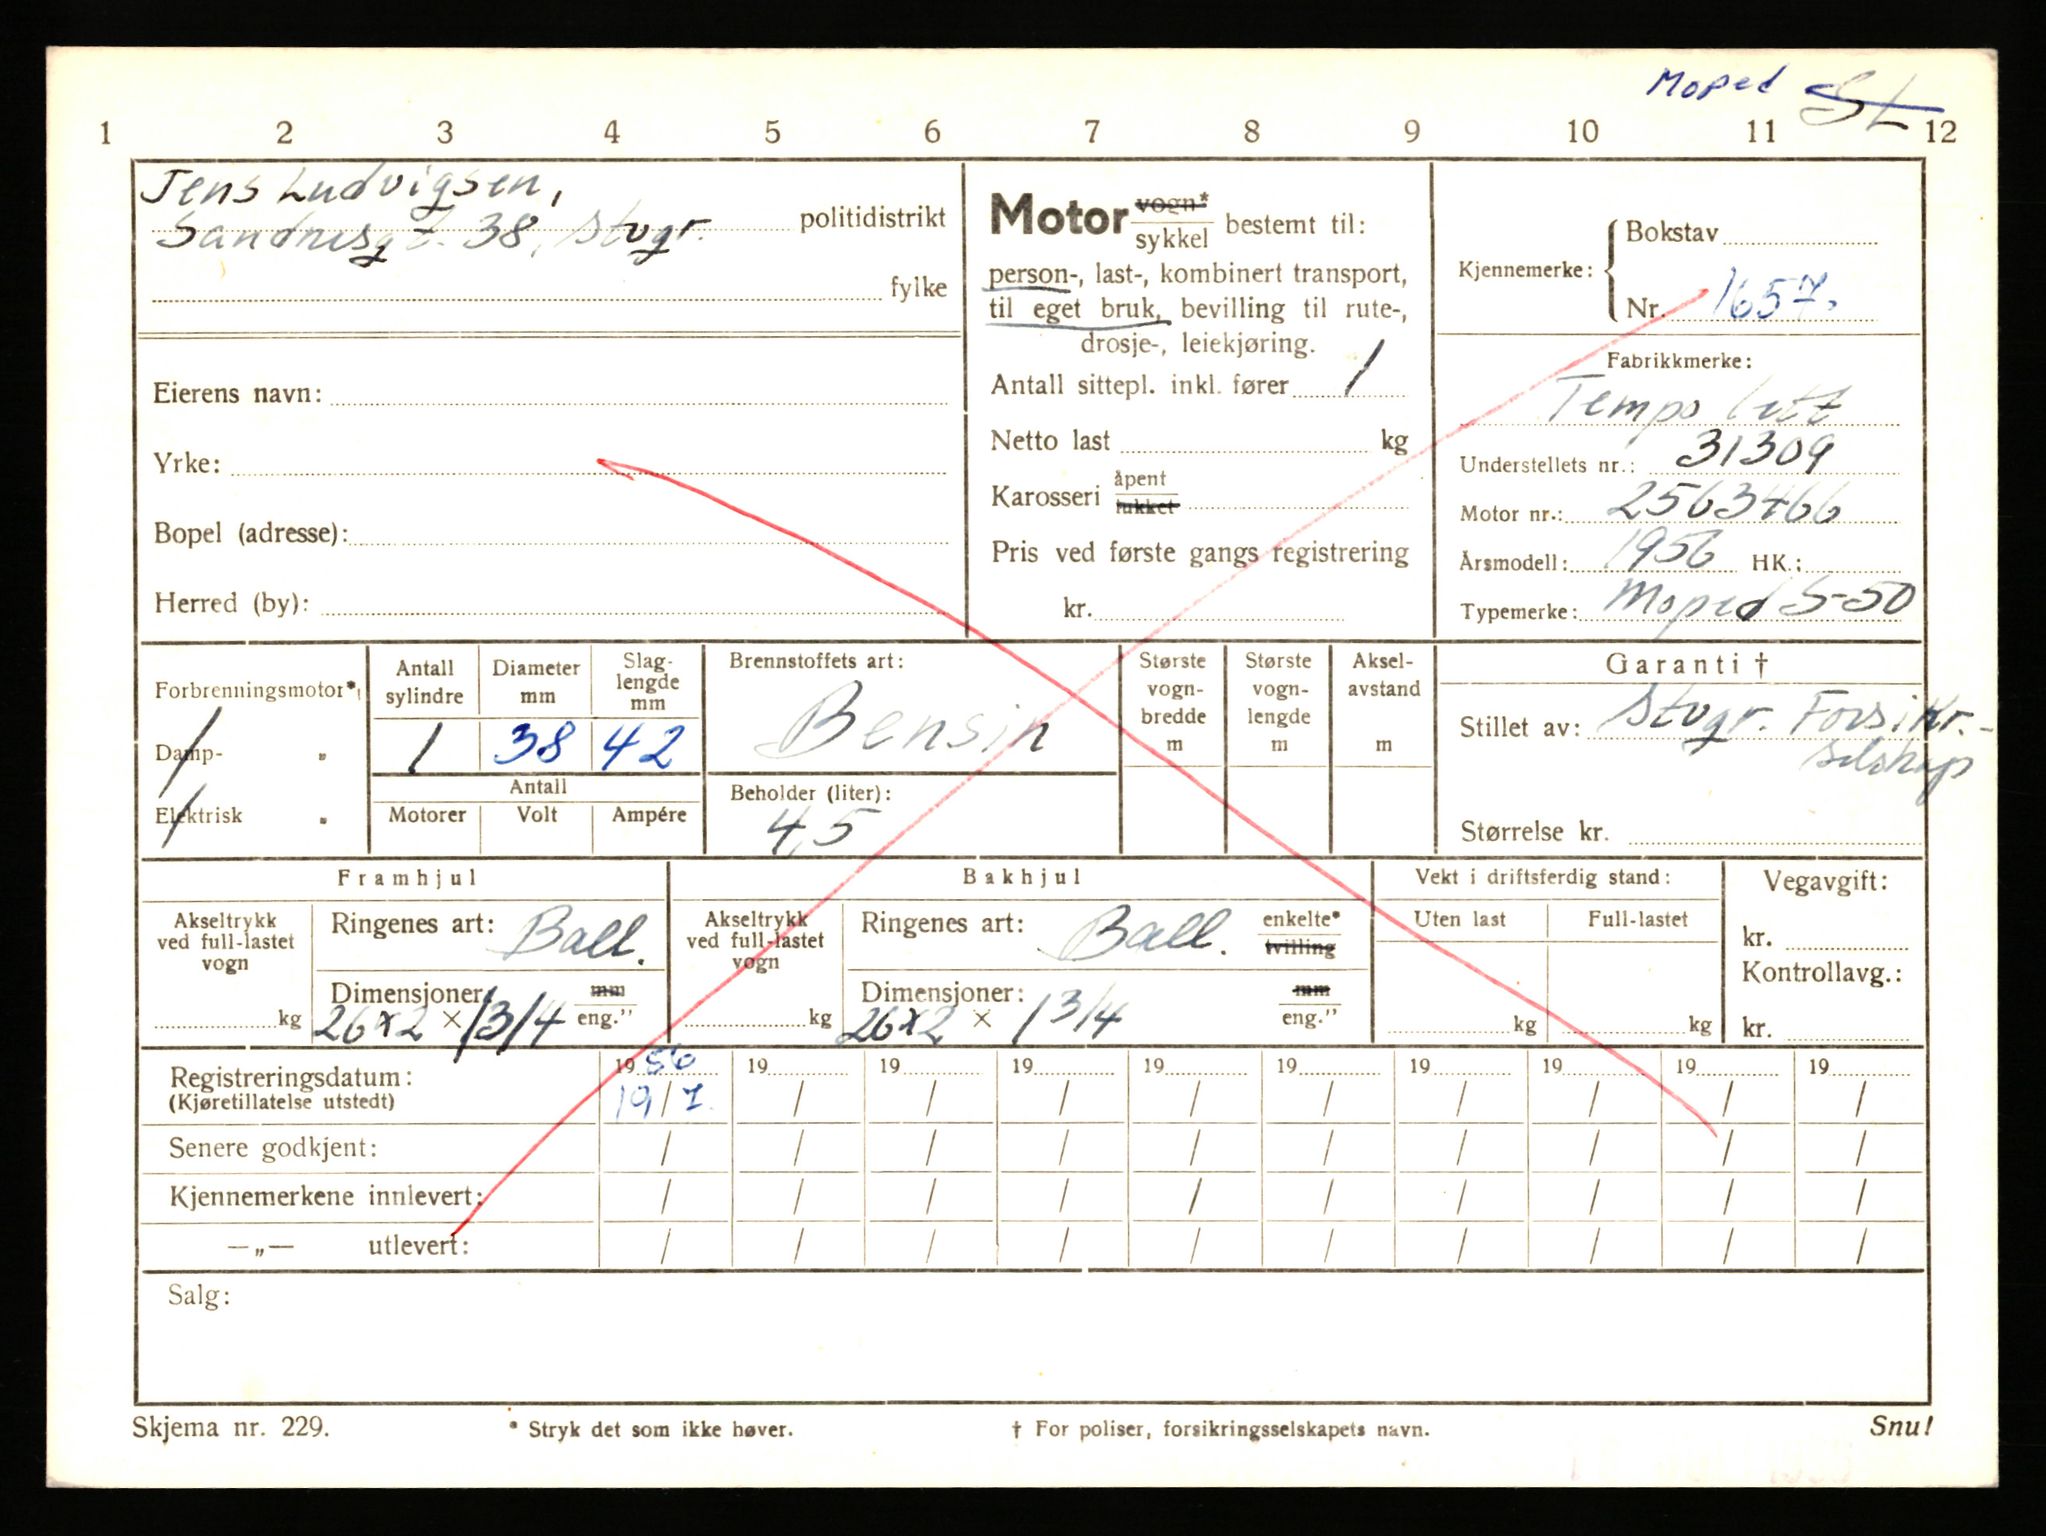 Moped SL
1 2 3 4 5 6 7 8 9 10 11 12
Jens Ludvigsen,
Sandnesgt. 38, Stvgr. politidistrikt
fylke
Eierens navn:
Yrke:
Bopel (adresse):
Herred (by):
Motor vogn* / sykkel bestemt til:
person-, last-, kombinert transport,
til eget bruk, bevilling til rute-,
drosje-, leiekjøring.
Antall sittepl. inkl. fører 1
Netto last kg
Karosseri åpent / lukket
Pris ved første gangs registrering
kr.
Kjennemerke: Bokstav
Nr. 1657.
Fabrikkmerke:
Tempo lett
Understellets nr.: 31309
Motor nr.: 2563466
Årsmodell: 1956 HK.:
Typemerke: Moped S-50
Forbrenningsmotor*)
Damp- „
Elektrisk „
Antall sylindre
1
Diameter mm
38
Slag-lengde mm
42
Antall
Motorer Volt Ampére
Brennstoffets art:
Bensin
Beholder (liter):
4,5
Største vogn-bredde m
Største vogn-lengde m
Aksel-avstand m
Garanti †
Stillet av: Stvgr. Forsikr.-
selskap
Størrelse kr.
Framhjul
Akseltrykk ved full-lastet vogn
kg
Ringenes art: Ball.
Dimensjoner: mm
26x2 × 1 3/4 eng."
Bakhjul
Akseltrykk ved full-lastet vogn
kg
Ringenes art: Ball. enkelte* / tvilling
Dimensjoner: mm
26x2 × 1 3/4 eng."
Vekt i driftsferdig stand:
Uten last Full-lastet
kg kg
Vegavgift:
kr.
Kontrollavg.:
kr.
Registreringsdatum: 19 56 19 19 19 19 19 19 19 19 19
(Kjøretillatelse utstedt) 19/7. / / / / / / / / /
Senere godkjent: / / / / / / / / / /
Kjennemerkene innlevert: / / / / / / / / / /
—„— utlevert: / / / / / / / / / /
Salg:
Skjema nr. 229. * Stryk det som ikke høver. † For poliser, forsikringsselskapets navn. Snu!